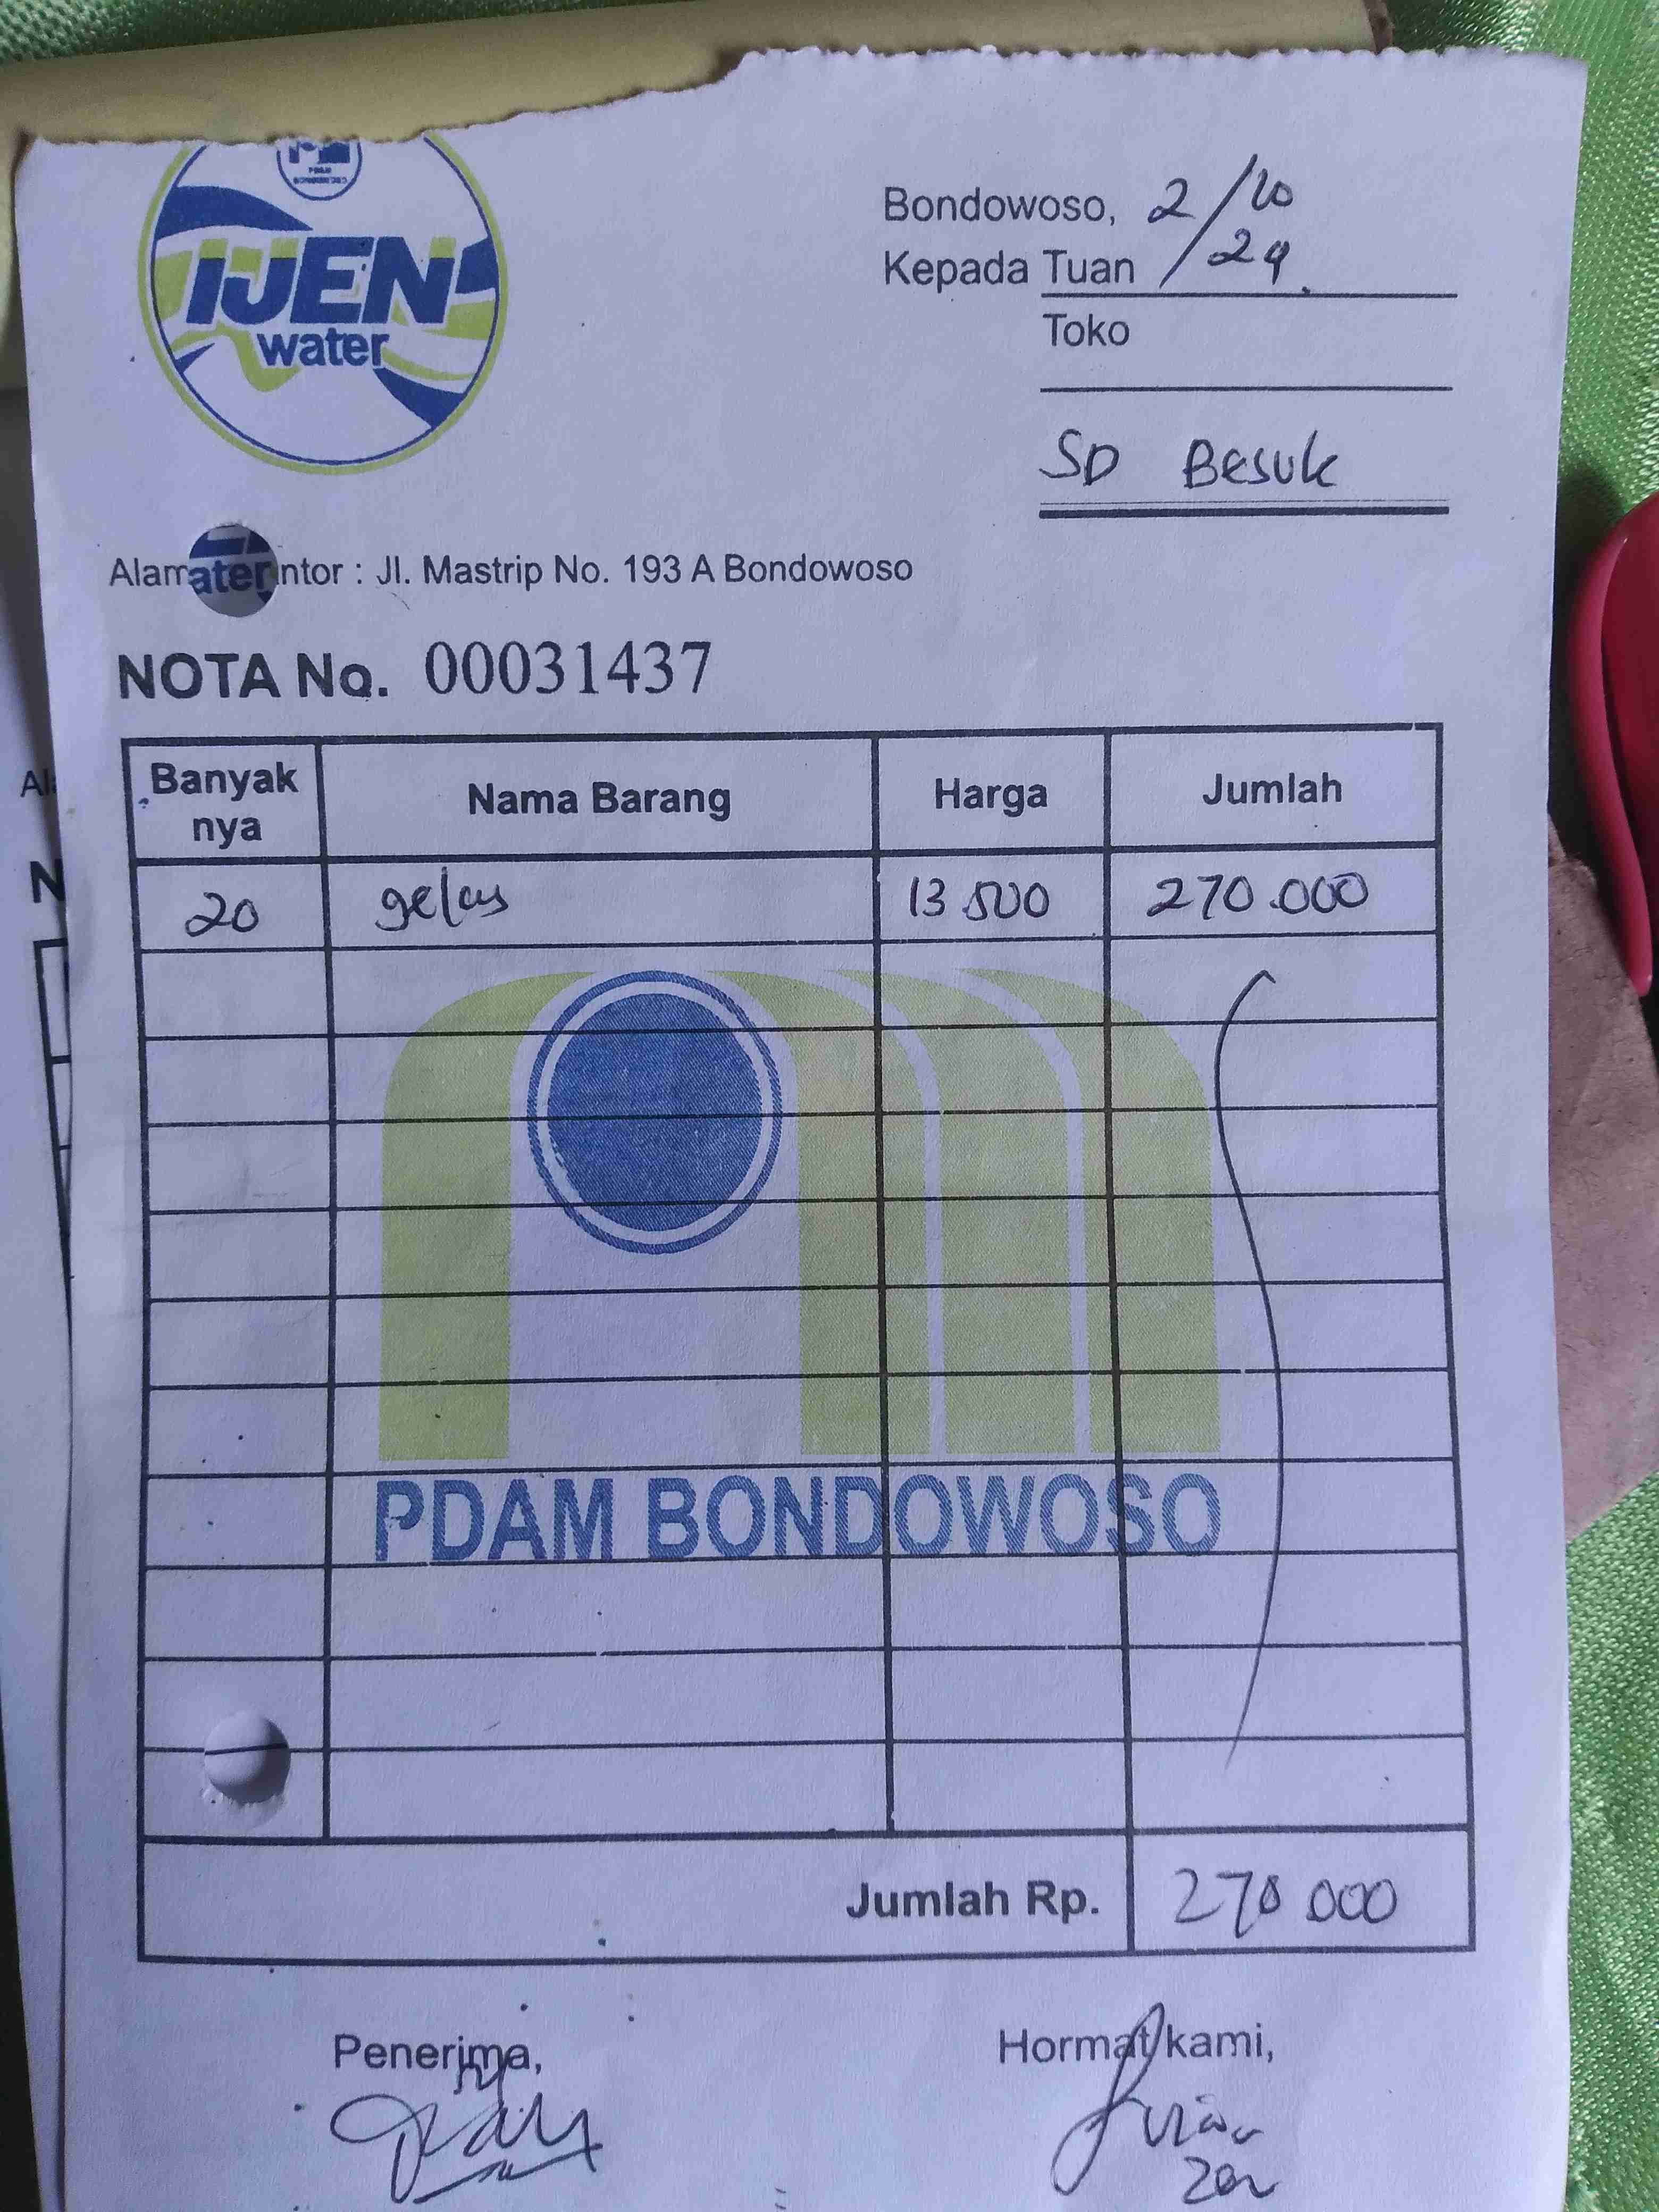 IJEN
water
Bondowoso, 2/10
Kepada Tuan /24.
Toko
SD Besuk
Alam ater ntor : Jl. Mastrip No. 193 A Bondowoso
NOTA No. 00031437
Banyak nya Nama Barang Harga Jumlah
20 gelas 13.500 270.000
PDAM BONDOWOSO
Jumlah Rp. 270.000
Penerima, Hormat kami,